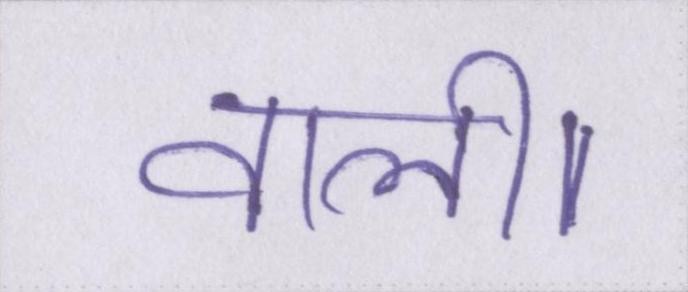 वाली।